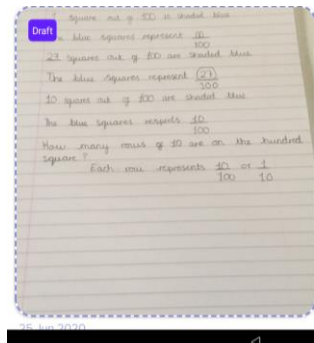 Draft
square out of 100 is shaded blue
blue squares represent
100
27 squares out of 100 are shaded blue
The blue squares represent 27
100
10 squares out of 100 are shaded blue
The blue squares 10
100
How many rows of 10 are on the hundred
square?
Each row represents 10 or 1
100 10
25 Jun 2020